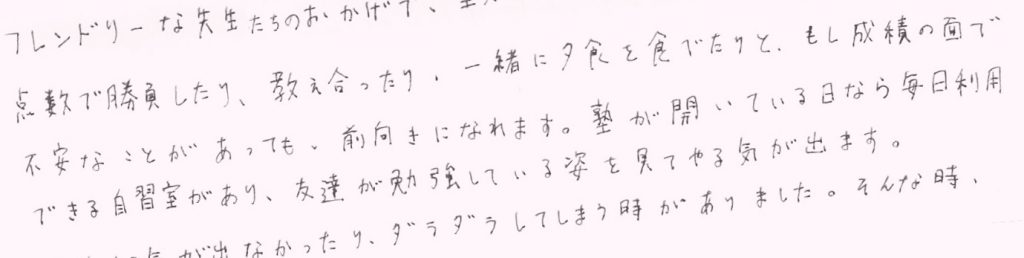 フレンドリーな先生たちのおかげで、
点数で勝負したり、教え合ったり、一緒に夕食を食べたりと、もし成績の面で
不安なことがあっても、前向きになれます。塾が開いている日なら毎日利用
できる自習室があり、友達が勉強している姿を見てやる気が出ます。
気が出なかったり、ダラダラしてしまう時がありました。そんな時、